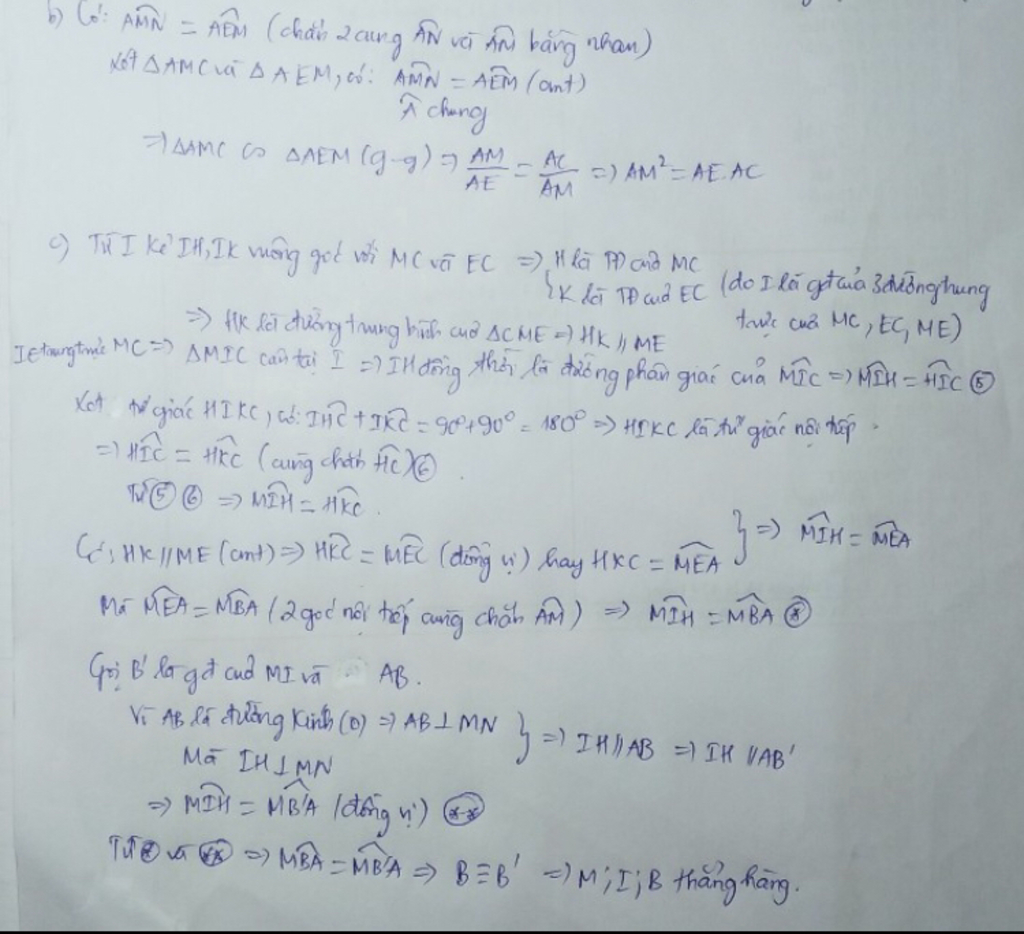 b) Có: \widehat{AMN} = \widehat{AEM} (chắn 2 cung AN và AM bằng nhau)
Xét ΔAMC và ΔAEM, có: \widehat{AMN} = \widehat{AEM} (cmt)
Â chung
=> ΔAMC ∽ ΔAEM (g-g) => AM/AE = AC/AM => AM² = AE.AC
c) Từ I kẻ IH, IK vuông góc với MC và EC => { H là TĐ của MC
K là TĐ của EC (do I là gđ của 3 đường trung
trực của MC, EC, ME)
=> HK là đường trung bình của ΔCME => HK // ME
I ∈ trung trực MC => ΔMIC cân tại I => IH đồng thời là đường phân giác của \widehat{MIC} => \widehat{MIH} = \widehat{HIC} ⑤
Xét tứ giác HIKC, có: \widehat{IHC} + \widehat{IKC} = 90° + 90° = 180° => HIKC là tứ giác nội tiếp.
=> \widehat{HIC} = \widehat{HKC} (cùng chắn HC) ⑥
Từ ⑤ ⑥ => \widehat{MIH} = \widehat{HKC}.
Có, HK // ME (cmt) => \widehat{HKC} = \widehat{MEC} (đồng vị) hay HKC = \widehat{MEA} } => \widehat{MIH} = \widehat{MEA}
Mà \widehat{MEA} = \widehat{MBA} (2 góc nội tiếp cùng chắn AM) => \widehat{MIH} = \widehat{MBA} (*)
Gọi B' là gđ của MI và AB.
Vì AB là đường kính (O) => AB ⊥ MN } => IH // AB => IH // AB'
Mà IH ⊥ MN
=> \widehat{MIH} = \widehat{MB'A} (đồng vị) (**)
Từ (*) và (**) => \widehat{MBA} = \widehat{MB'A} => B ≡ B' => M; I; B thẳng hàng.